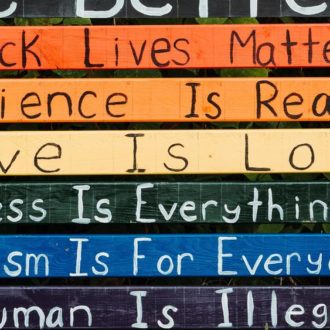 ck Lives Matte
ience Is Rea
ve Is Lo
ess Is Everythin
ism Is For Every
uman Is Illeg